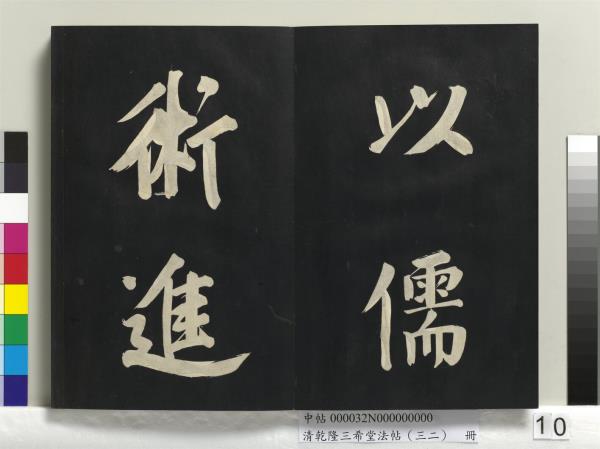 以儒
術進
中帖 000032N000000000
清乾隆三希堂法帖（三二） 冊
10